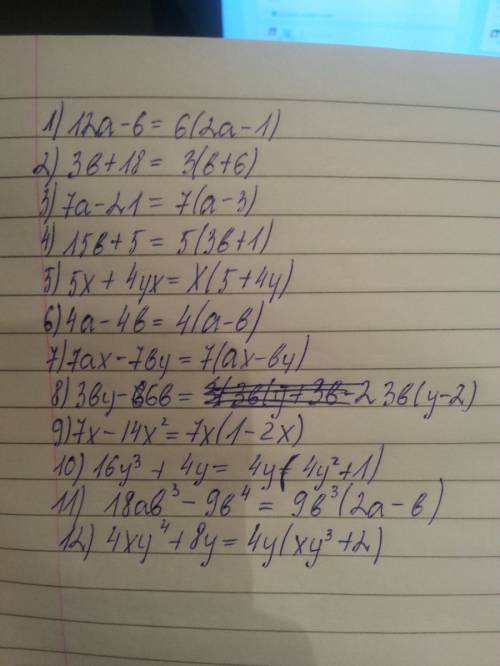 1) 12a-6 = 6(2a-1)
2) 3в+18 = 3(в+6)
3) 7a-21 = 7(a-3)
4) 15в+5 = 5(3в+1)
5) 5x + 4yx = x(5+4y)
6) 4a-4в = 4(a-в)
7) 7ax-7вy = 7(ax-вy)
8) 3вy-6в = 3в(y-2)
9) 7x-14x² = 7x(1-2x)
10) 16y³ + 4y = 4y(4y²+1)
11) 18aв³ - 9в⁴ = 9в³(2a-в)
12) 4xy⁴+8y = 4y(xy³+2)